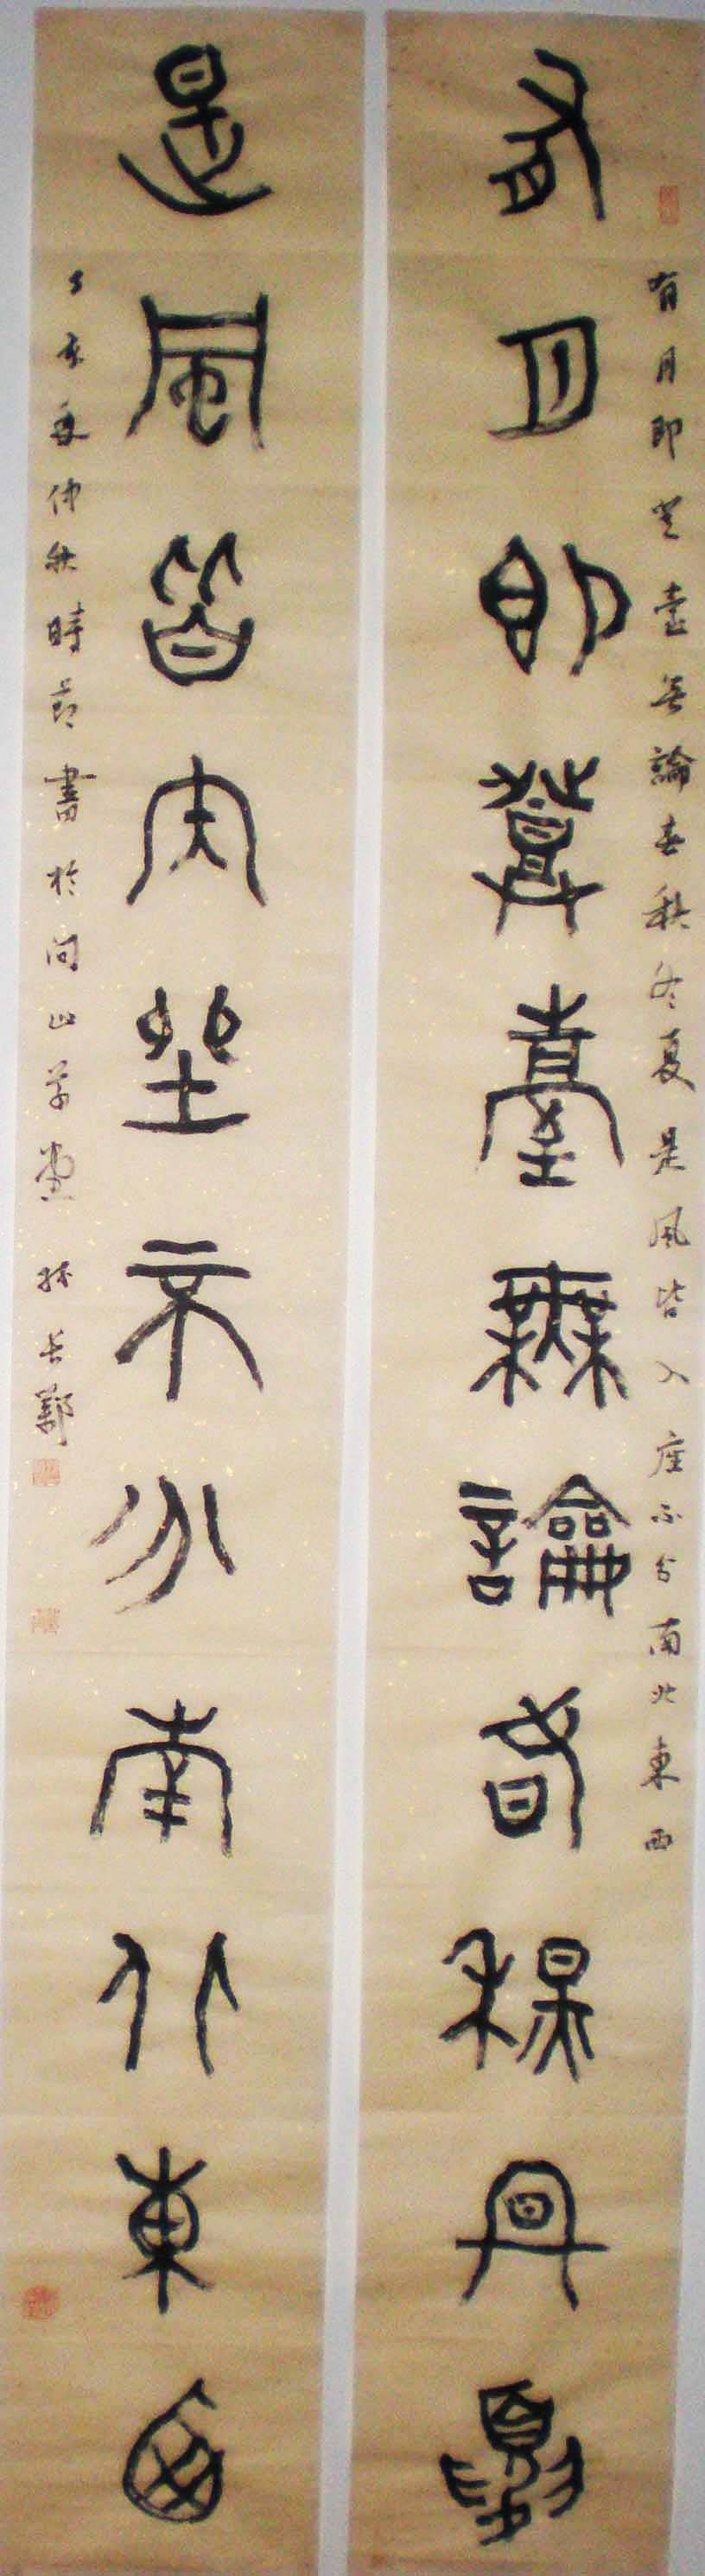 有月即登臺無論春秋冬夏是風皆入座不分南北東西
有月即登臺無論春秋冬夏
是風皆入坐不分南北東西
丁亥季仲秋時節書於問山草堂